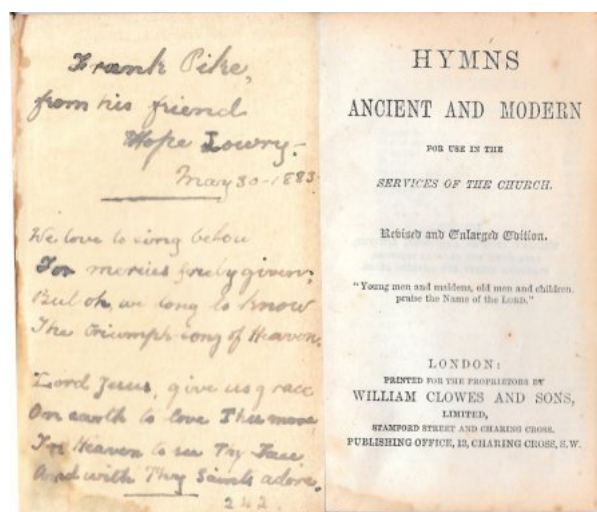 Frank Pike,
from his friend
Hope Lowry.-
May 30-1883.
We love to sing below
For mercies freely given,
But oh, we long to know
The triumph-song of Heaven.
Lord Jesus, give us grace
On earth to love Thee more
In Heaven to see Thy Face
And with Thy Saints adore.
242.
HYMNS
ANCIENT AND MODERN
FOR USE IN THE
SERVICES OF THE CHURCH.
Revised and Enlarged Edition.
"Young men and maidens, old men and children,
praise the Name of the LORD."
LONDON:
PRINTED FOR THE PROPRIETORS BY
WILLIAM CLOWES AND SONS,
LIMITED,
STAMFORD STREET AND CHARING CROSS.
PUBLISHING OFFICE, 13, CHARING CROSS, S.W.